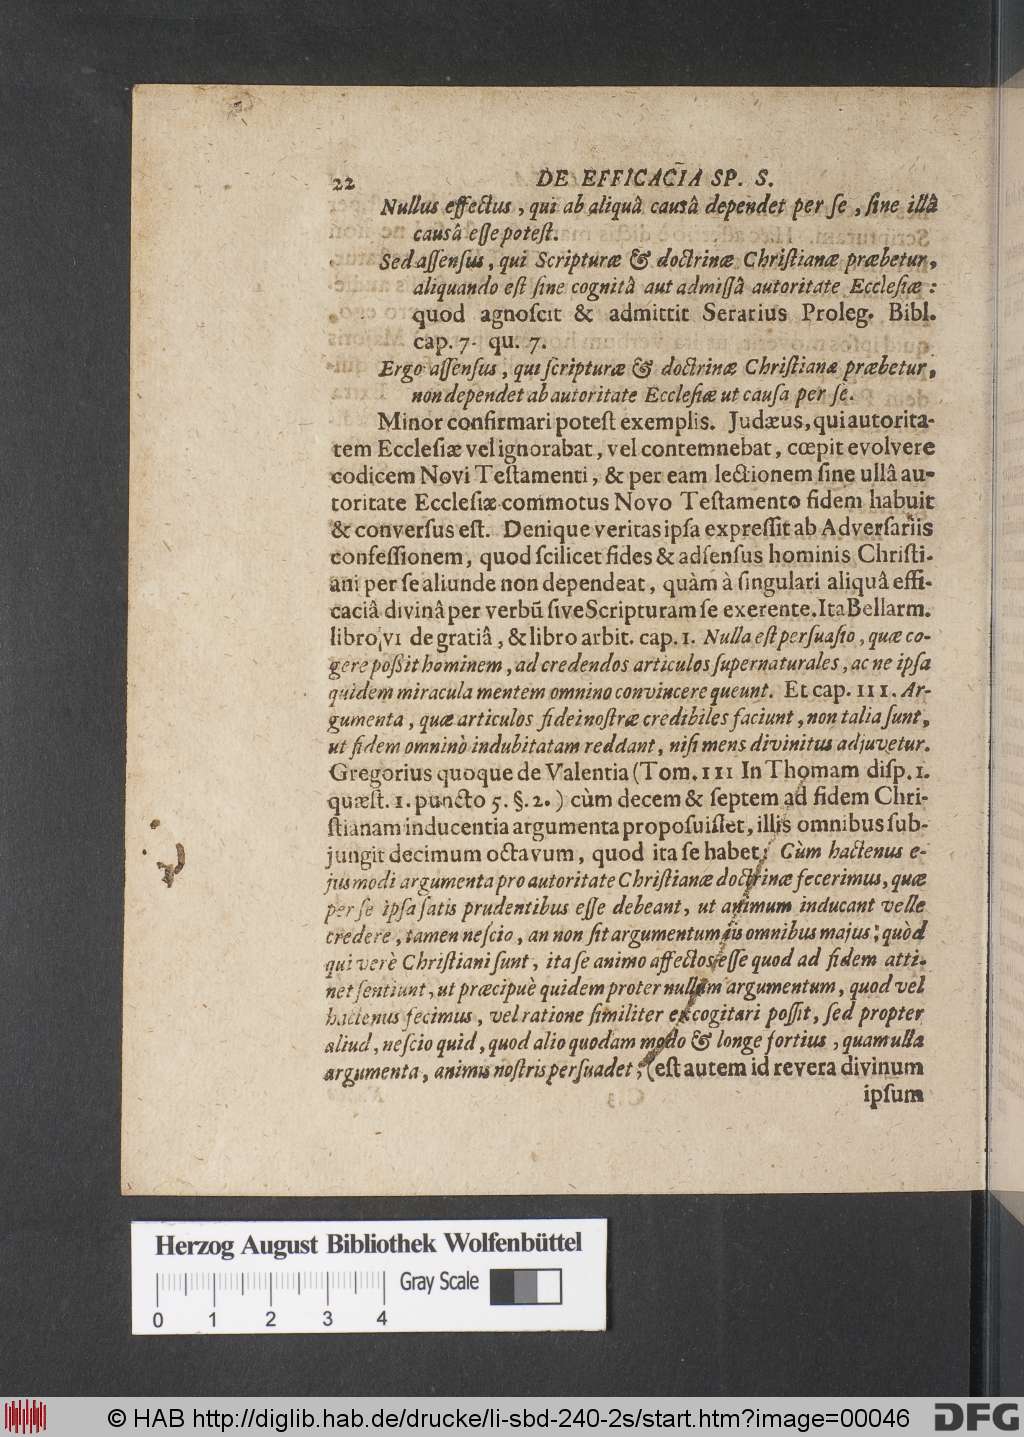 22 DE EFFICACIA SP. S.
Nullus effectus, qui ab aliquâ causâ dependet per ſe, ſine illâ
causâ eſſe poteſt.
Sed aſſenſus, qui Scripturæ & doctrinæ Chriſtianæ præbetur,
aliquando eſt ſine cognitâ aut admiſſâ autoritate Eccleſiæ:
quod agnoſcit & admittit Serarius Proleg. Bibl.
cap. 7. qu. 7.
Ergo aſſenſus, qui ſcripturæ & doctrinæ Chriſtianæ præbetur,
non dependet ab autoritate Eccleſiæ ut cauſa per ſe.
Minor confirmari poteſt exemplis. Judæus, qui autorita-
tem Eccleſiæ vel ignorabat, vel contemnebat, cœpit evolvere
codicem Novi Teſtamenti, & per eam lectionem ſine ullâ au-
toritate Eccleſiæ commotus Novo Teſtamento fidem habuit
& converſus eſt. Denique veritas ipſa expreſſit ab Adverſariis
confeſſionem, quod ſcilicet fides & adſenſus hominis Chriſti-
ani per ſe aliunde non dependeat, quàm à ſingulari aliquâ effi-
caciâ divinâ per verbū ſive Scripturam ſe exerente. Ita Bellarm.
libro VI de gratiâ, & libro arbit. cap. 1. Nulla eſt perſuaſio, quæ co-
gere poßit hominem, ad credendos articulos ſupernaturales, ac ne ipſa
quidem miracula mentem omnino convincere queunt. Et cap. III. Ar-
gumenta, quæ articulos fidei noſtræ credibiles faciunt, non talia ſunt,
ut fidem omninò indubitatam reddant, niſi mens divinitus adjuvetur.
Gregorius quoque de Valentia (Tom. III In Thomam diſp. 1.
quæſt. 1. puncto 5. §. 2.) cùm decem & ſeptem ad fidem Chri-
ſtianam inducentia argumenta propoſuiſſet, illis omnibus ſub-
jungit decimum octavum, quod ita ſe habet: Cùm hactenus e-
jusmodi argumenta pro autoritate Chriſtianæ doctrinæ fecerimus, quæ
per ſe ipſa ſatis prudentibus eſſe debeant, ut animum inducant velle
credere, tamen neſcio, an non ſit argumentum iis omnibus majus; quòd
qui verè Chriſtiani ſunt, ita ſe animo affectos eſſe quod ad fidem atti-
net ſentiunt, ut præcipuè quidem proter nullum argumentum, quod vel
hactenus fecimus, vel ratione ſimiliter excogitari poſſit, ſed propter
aliud, neſcio quid, quod alio quodam modo & longe fortius, quam ulla
argumenta, animis noſtris perſuadet; (eſt autem id revera divinum
ipſum
Herzog August Bibliothek Wolfenbüttel
Gray Scale
0 1 2 3 4
© HAB http://diglib.hab.de/drucke/li-sbd-240-2s/start.htm?image=00046
DFG